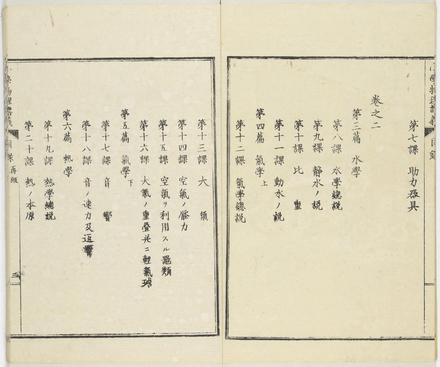 第七課 助力器具
卷之二
第三篇 水學
第八課 水學總説
第九課 靜水ノ説
第十課 比重
第十一課 動水ノ説
第四篇 氣學上
第十二課 氣學總説
第十三課 大氣
第十四課 空氣ノ壓力
第十五課 空氣ヲ利用スル器類
第十六課 大氣ノ重疊并ニ輕氣球
第五篇 氣學下
第十七課 音響
第十八課 音ノ速力及返響
第六篇 熱學
第十九課 熱學總説
第二十課 熱ノ本原